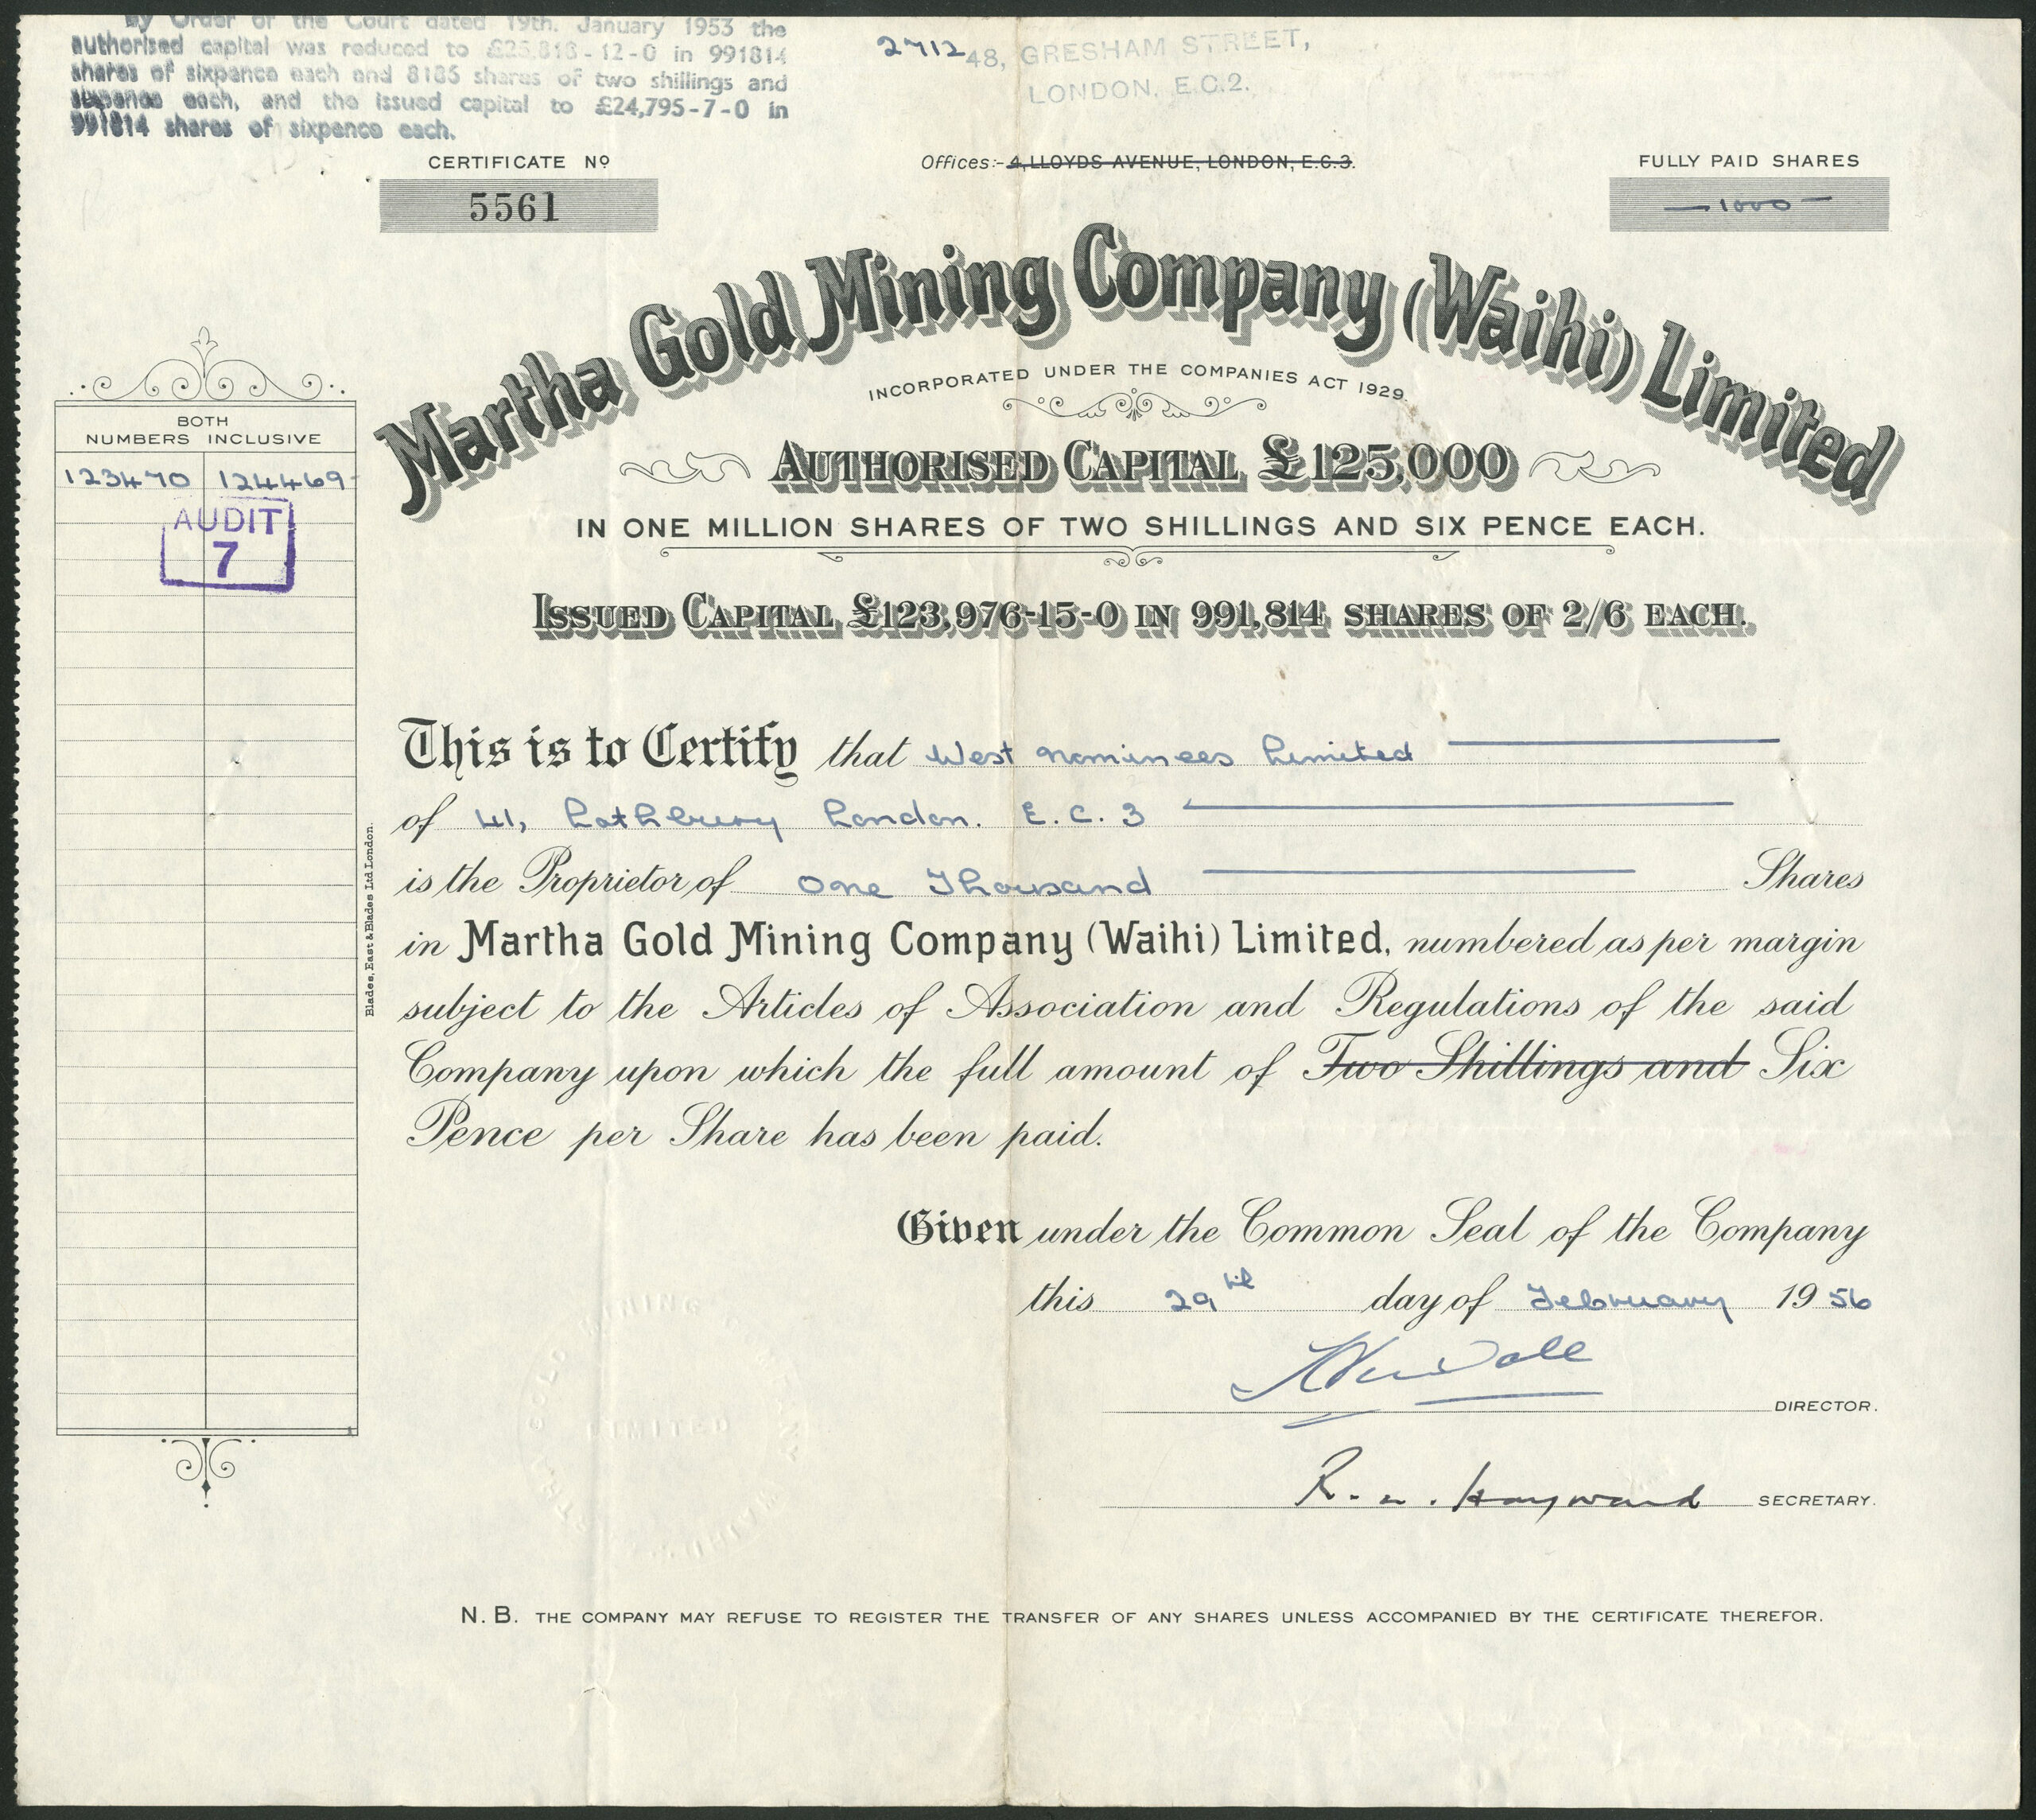 By Order of the Court dated 19th. January 1953 the
authorised capital was reduced to £25,818-12-0 in 991814
shares of sixpence each and 8186 shares of two shillings and
sixpence each, and the issued capital to £24,795-7-0 in
991814 shares of sixpence each.
2712
48, GRESHAM STREET,
LONDON, E.C.2.
CERTIFICATE No
5561
Offices:- 4, LLOYDS AVENUE, LONDON, E.C.3.
FULLY PAID SHARES
— 1000 —
Martha Gold Mining Company (Waihi) Limited
INCORPORATED UNDER THE COMPANIES ACT 1929.
AUTHORISED CAPITAL £125,000
IN ONE MILLION SHARES OF TWO SHILLINGS AND SIX PENCE EACH.
ISSUED CAPITAL £123,976-15-0 IN 991,814 SHARES OF 2/6 EACH.
BOTH
NUMBERS INCLUSIVE
123470 124469
AUDIT
7
Blades, East & Blades Ltd London.
This is to Certify that West Nominees Limited
of 41, Lothbury London. E.C.3
is the Proprietor of One Thousand Shares
in Martha Gold Mining Company (Waihi) Limited, numbered as per margin
subject to the Articles of Association and Regulations of the said
Company upon which the full amount of Two Shillings and Six
Pence per Share has been paid.
Given under the Common Seal of the Company
this 29th day of February 1956
DIRECTOR.
R. Hayward SECRETARY.
LIMITED
N.B. THE COMPANY MAY REFUSE TO REGISTER THE TRANSFER OF ANY SHARES UNLESS ACCOMPANIED BY THE CERTIFICATE THEREFOR.